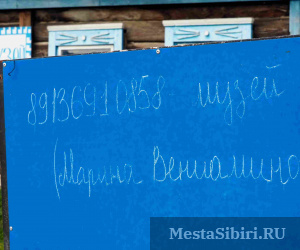 89136910858 музей
(Марина Вениамино
MestaSibiri.RU